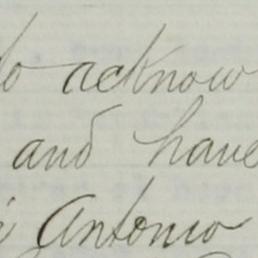 to acknow
and have
i Antonio